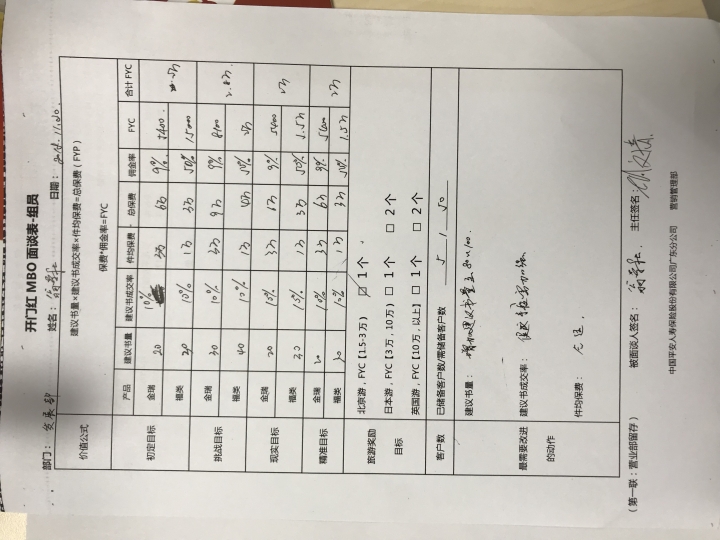 开门红 MBO 面谈表-组员
部门： 发展部 姓名： 日期： 2018.11.20.
价值公式 建议书量×建议书成交率×件均保费=总保费（FYP）
保费*佣金率=FYC
产品 建议书量 建议书成交率 件均保费 总保费 佣金率 FYC 合计 FYC
初定目标 金瑞 20 10% 3万 6万 9% 5400.
福类 30 10% 1万 3万 50% 15000
挑战目标 金瑞 30 10% 3万 9万 9% 8100
福类 40 10% 1万 50% 2万 2.8万
现实目标 金瑞 20 10% 3万 9% 5400 2万
福类 30 10% 1万 3万 50% 1.5万
精准目标 金瑞 20 10% 3万 6万 9% 5400 2万
福类 30 10% 1万 3万 50% 1.5万
旅游奖励
目标
北京游，FYC【1.5-3万】 ☑ 1个
日本游，FYC【3万，10万】 □ 1个 □ 2个
英国游，FYC【10万，以上】 □ 1个 □ 2个
客户数 已储备客户数/需储备客户数 5 / 50
最需要改进
的动作
建议书量： 增加建议书量至
建议书成交率：
件均保费：
（第一联：营业部留存） 被面谈人签名： 主任签名：
中国平安人寿保险股份有限公司广东分公司 营销管理部